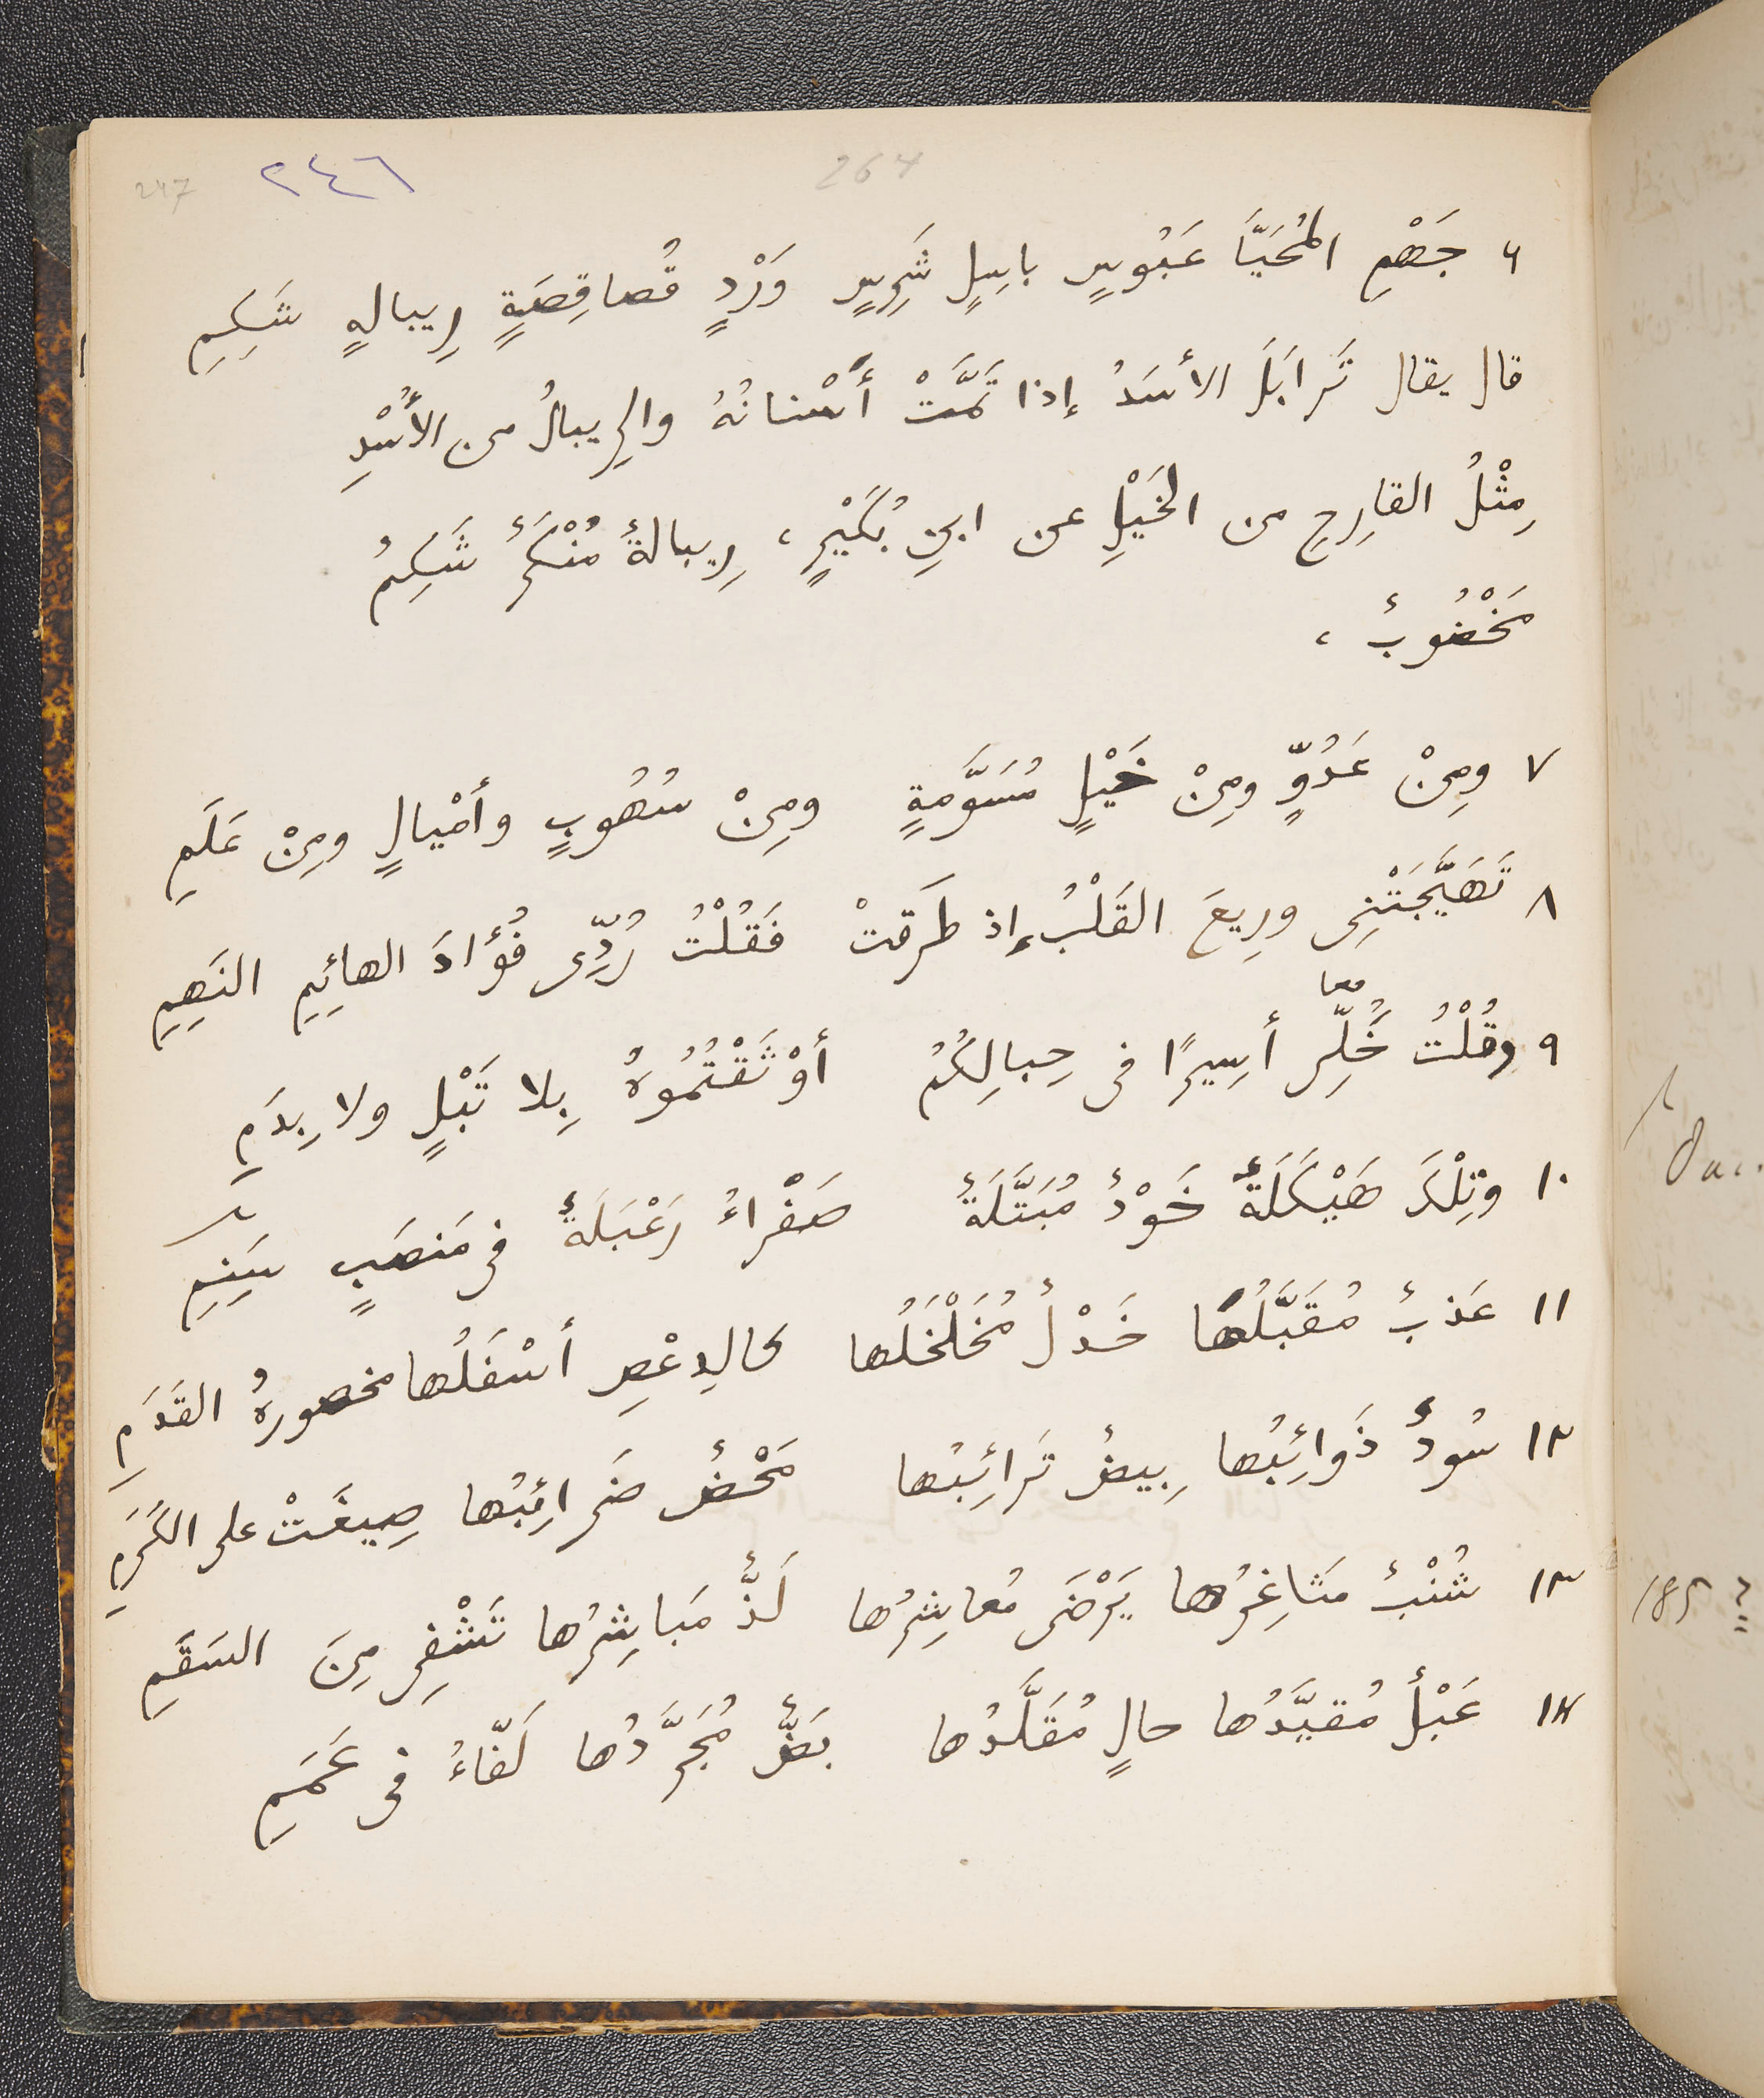 247 ٢٤٦ 264
٦ جَهْمِ المُحَيَّا عَبُوسٍ باسِلٍ شَرِسٍ وَرْدٍ قُصاقِصَةٍ رِيبالهٍ شَكِمِ
قال يقال تَرابَلَ الأسَدُ إذا تَمَّتْ أسْنانُهُ والرِيبالُ من الأُسْدِ
مِثْلُ القارِحِ من الخَيْلِ عن ابنِ بُكَيْرٍ، رِيبالةٌ مُنْكَرٌ شَكِمٌ
مَخْضُوبٌ،
٧ ومِنْ عَدُوٍّ ومِنْ خَيْلٍ مُسَوَّمةٍ ومِنْ سُهُوبٍ وأمْيالٍ ومِنْ عَلَمِ
٨ تَهَيَّجَتْنِى ورِيعَ القَلْبُ إذ طَرَقتْ فَقُلْتُ رُدِّى فُؤادَ الهائِمِ النَهِمِ
معا
٩ وقُلْتُ خَُلِّى أسِيرًا فى حِبالِكُمُ أوْثَقْتُمُوهُ بِلا تَبْلٍ ولا بِدَمِ
١٠ وتِلْكَ هَيْكَلَةٌ خَوْدٌ مُبَتَّلَةٌ صَفْراءُ رَعْبَلَةٌ فى مَنصَبٍ سَنِمِ
١١ عَذبٌ مُقَبَّلُها خَدْلٌ مُخَلْخَلُها كالدِعْصِ أسْفَلُها مخصورةُ القَدَمِ
١٢ سُودٌ ذَوائِبُها بِيضٌ تَرائِبُها مَحْضٌ ضَرائِبُها صِيغَتْ على الكَرَمِ
١٣ شُنْبٌ مَثاغِرُها يَرْضَى مُعاشِرُها لَذٌّ مَباشِرُها تَشْفِى مِنَ السَقَمِ
١٤ عَبْلٌ مُقيَّدُها حالٍ مُقَلَّدُها بَضٌّ مُجَرَّدُها لَفّاءُ فى عَمَمِ